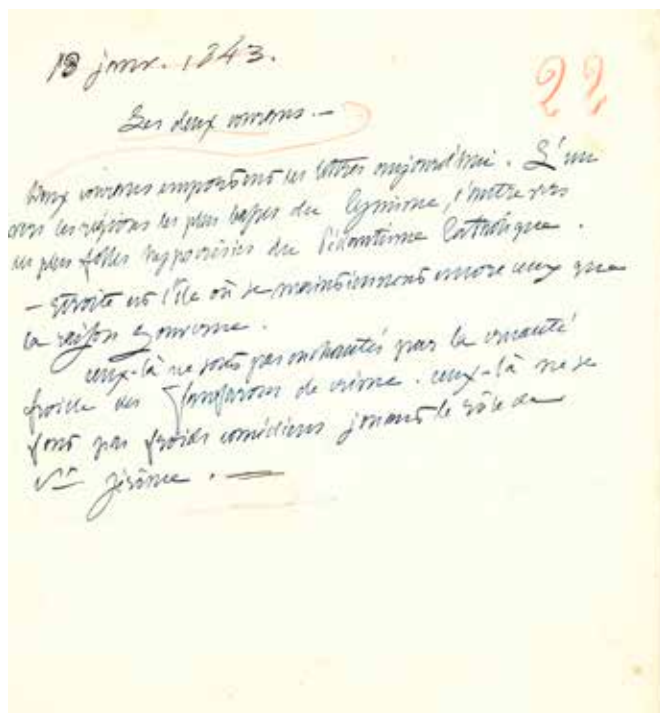 13 janv. 1843.
22
Les deux courans. —
Deux courans emportent les lettres aujourd'hui. L'un
vers les régions les plus basses du Cynisme, l'autre vers
les plus folles hypocrisies du Pédantisme Catholique.
— étroite est l'île où se maintiennent encore ceux que
la raison gouverne.
ceux-là ne sont pas enchantés par la cruauté
froide des fanfarons de crime. ceux-là ne se
font pas froids comédiens jouant le rôle de
St Jérôme. —